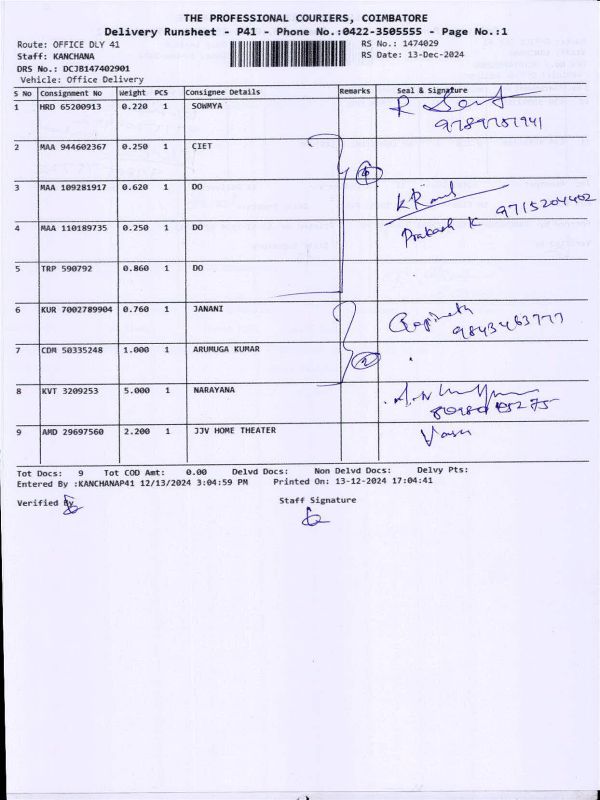 THE PROFESSIONAL COURIERS, COIMBATORE
Delivery Runsheet - P41 - Phone No.:0422-3505555 - Page No.:1
Route: OFFICE DLY 41 RS No.: 1474029
Staff: KANCHANA RS Date: 13-Dec-2024
DRS No.: DCJB147402901
Vehicle: Office Delivery
S No Consignment No Weight PCS Consignee Details Remarks Seal & Signature
1 HRD 65200913 0.220 1 SOWMYA R
9789757941
2 MAA 944602367 0.250 1 CIET
3 MAA 109281917 0.620 1 DO 9715204402
4 MAA 110189735 0.250 1 DO Prakash K
5 TRP 590792 0.860 1 DO
6 KUR 7002789904 0.760 1 JANANI Gopinath
9843463777
7 CDM 50335248 1.000 1 ARUMUGA KUMAR 2
8 KVT 3209253 5.000 1 NARAYANA
9 AMD 29697560 2.200 1 JJV HOME THEATER Vasu
Tot Docs: 9 Tot COD Amt: 0.00 Delvd Docs: Non Delvd Docs: Delvy Pts:
Entered By :KANCHANAP41 12/13/2024 3:04:59 PM Printed On: 13-12-2024 17:04:41
Verified By Staff Signature